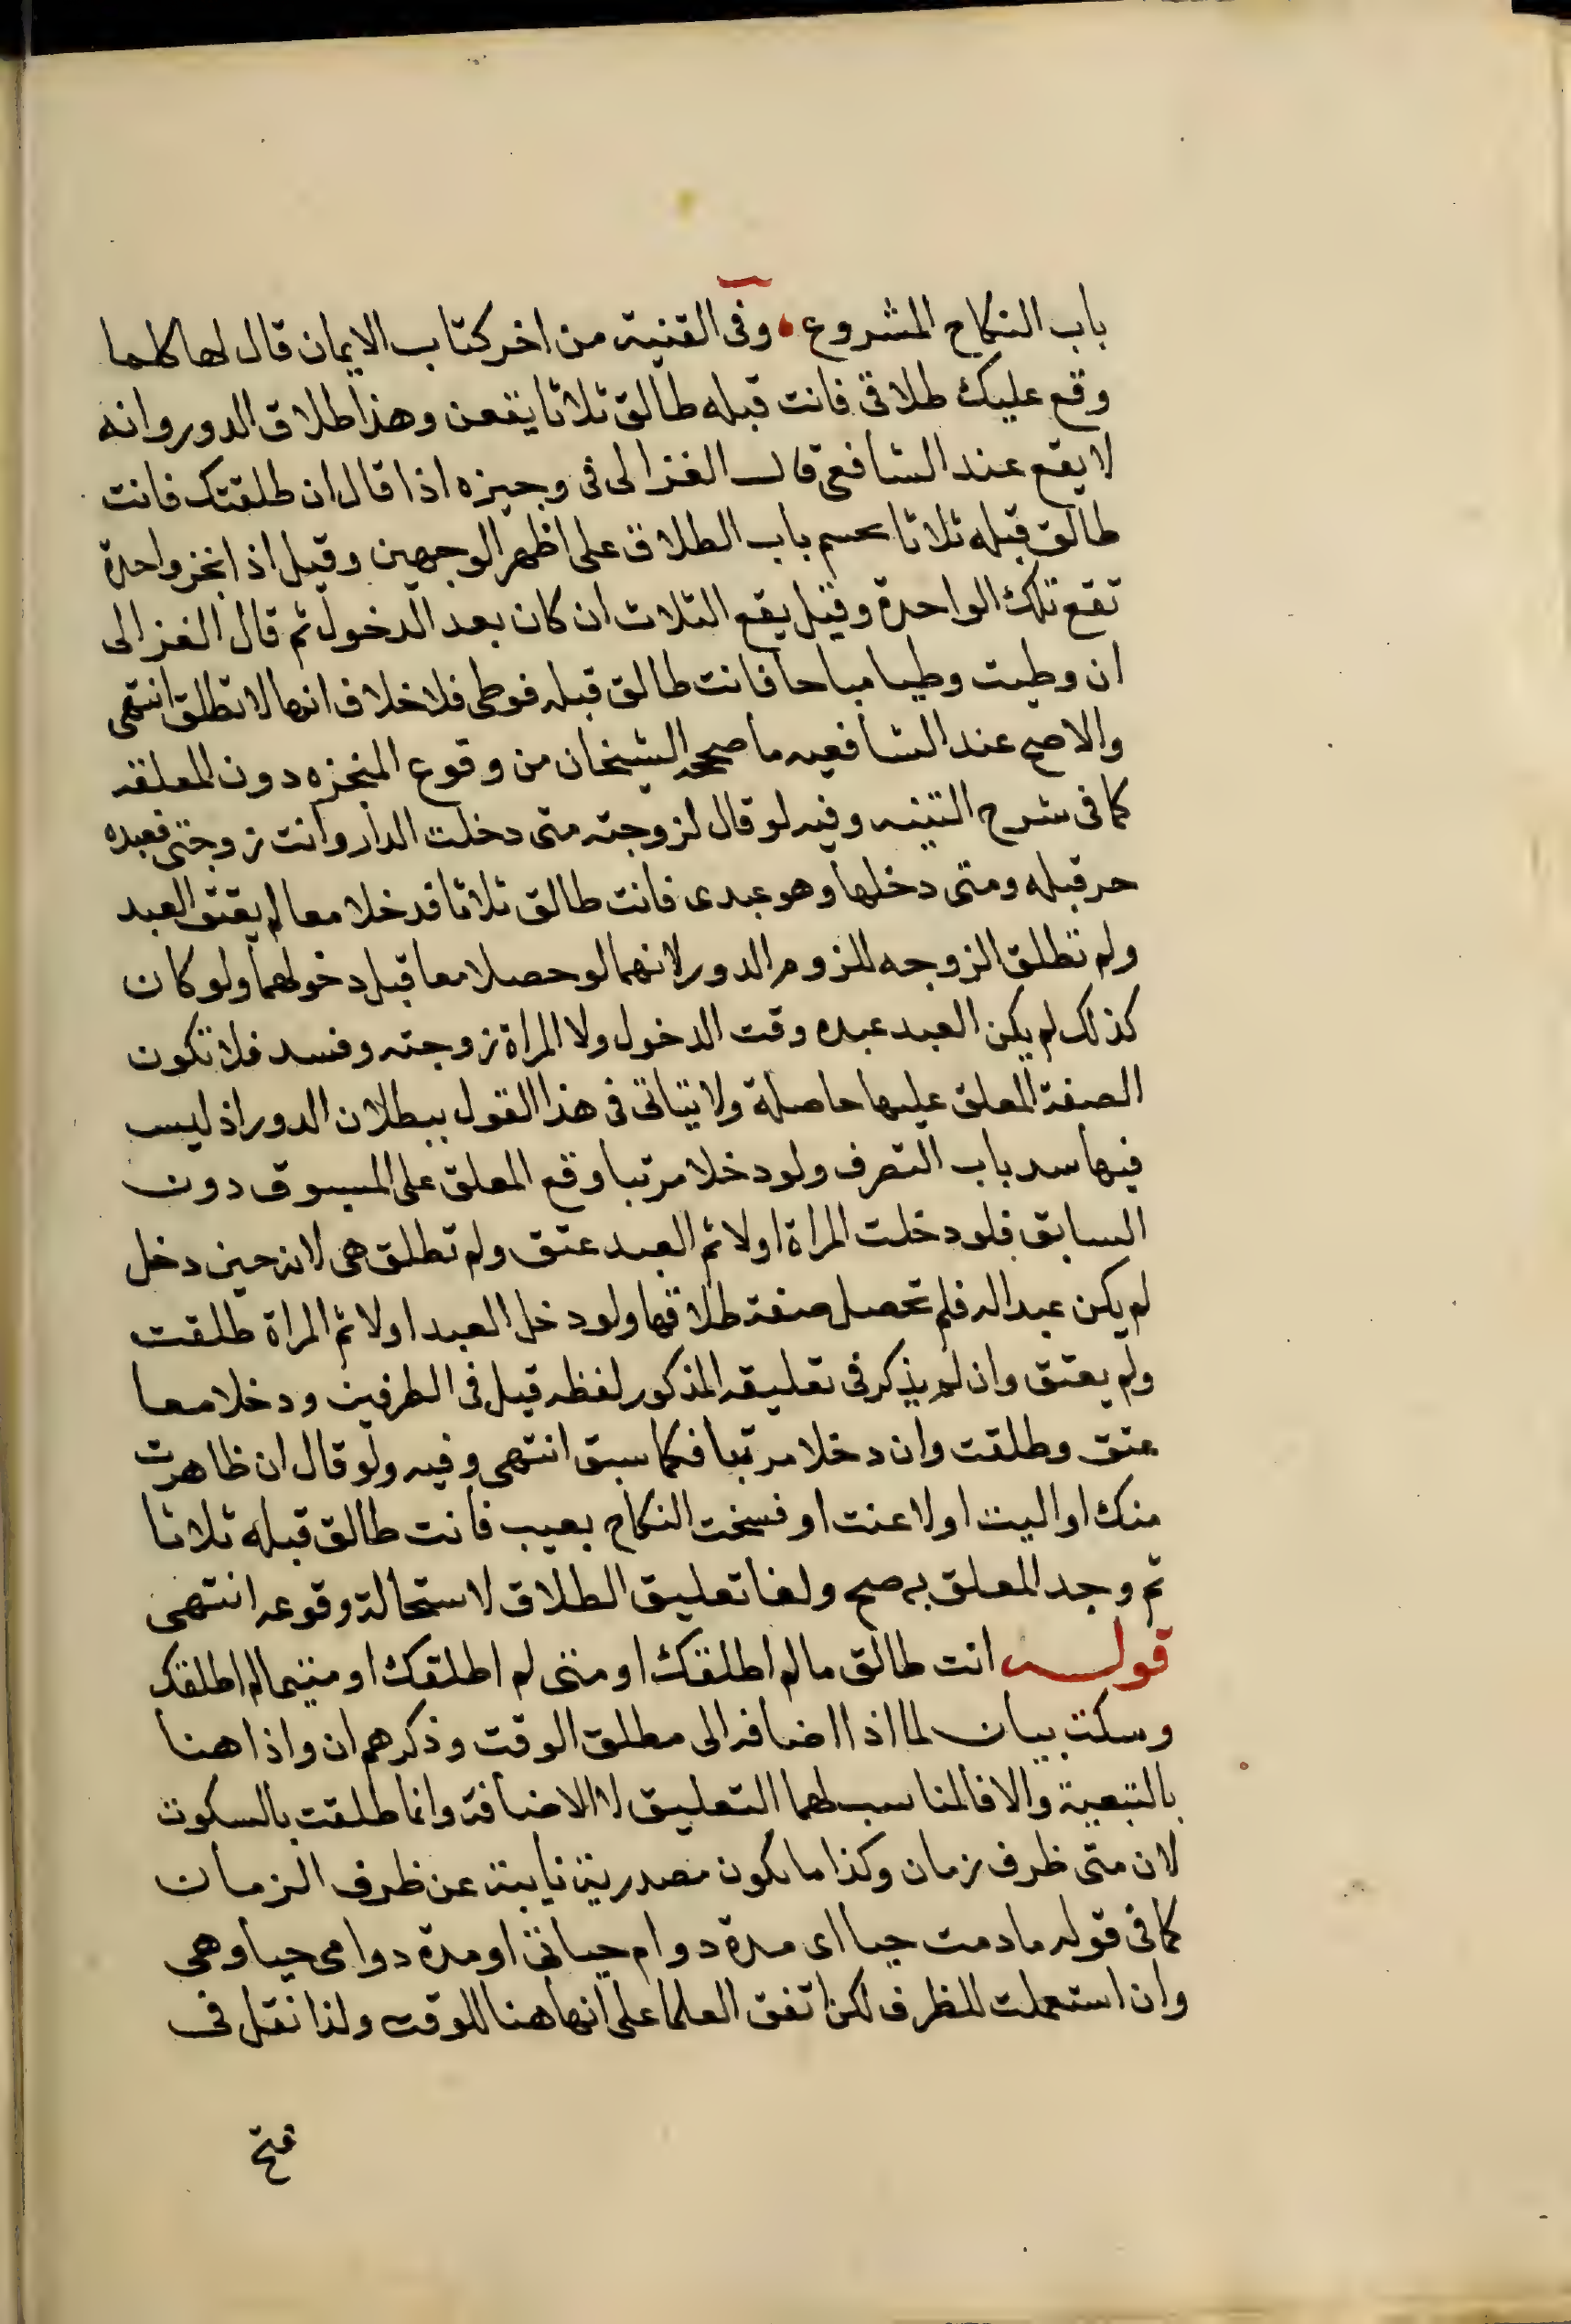 باب النكاح المشروع وفى القنية من اخر كتاب الايمان قال لها كلما
وقع عليك طلاقى فانت قبله طالق ثلاثا يقعن وهذا طلاق الدور وانه
لا يقع عند الشافعى قال الغزالى فى وجيزه اذا قال ان طلقتك فانت
طالق قبله ثلاثا يحسم باب الطلاق على اظهر الوجهين وقيل اذا نجز واحدة
تقع تلك الواحدة وقيل يقع الثلاث ان كان بعد الدخول ثم قال الغزالى
ان وطيت وطيا مباحا فانت طالق قبله فوطى فلا خلاف انها لا تطلق انتهى
والاصح عند الشافعيه ما صححه الشيخان من وقوع المنجزه دون المعلقه
كما فى شرح التنبيه وفيه لو قال لزوجته متى دخلت الدار وانت زوجتى فعبده
حر قبله ومتى دخلها وهو عبدى فانت طالق ثلاثا فدخلا معا لم يعتق العبد
ولم تطلق الزوجه للزوم الدور لانهما لو حصلا معا قبل دخولهما ولو كان
كذلك لم يكن العبد عبده وقت الدخول ولا المراة زوجته وفسد فلا تكون
الصفة المعلق عليها حاصلة ولا يتاتى فى هذا القول ببطلان الدور اذ ليس
فيها سد باب التصرف ولو دخلا مرتبا وقع المعلق على المسبوق دون
السابق فلو دخلت المراة اولا ثم العبد عتق ولم تطلق هى لانه حين دخل
لم يكن عبدا له فلم تحصل صفة طلاقها ولو دخل العبد اولا ثم المراة طلقت
ولم يعتق وان لم يذكر فى تعليقه المذكور لفظه قبل فى الطرفين ودخلا معا
عتق وطلقت وان دخلا مرتبا فكما سبق انتهى وفيه ولو قال ان ظاهرت
منك او اليت او لاعنت او فسخت النكاح بعيب فانت طالق قبله ثلاثا
ثم وجد المعلق به صح ولغا تعليق الطلاق لاستحالة وقوعه انتهى
قوله انت طالق ما لم اطلقك او متى لم اطلقك او متيما لم اطلقك
وسكت بيان لما اذا اضافه الى مطلق الوقت وذكرهم ان واذا هنا
بالتبعية والا فالمناسب لهما التعليق لا الاضافة وانما طلقت بالسكوت
لان متى ظرف زمان وكذا ما تكون مصدرية نايبة عن ظرف الزمان
كما فى قوله ما دمت حيا اى مدة دوام حياتى او مدة دوامى حيا وهى
وان استعملت للظرف لكن اتفق العلما على انها هنا للوقت ولذا نقل فى
فتح